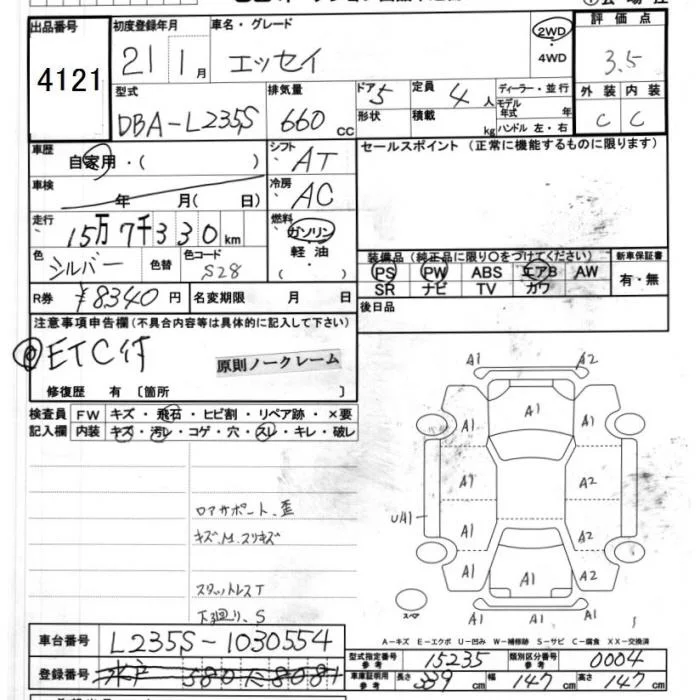 出品番号 初度登録年月 車名・グレード 2WD 評価点
4121 21 1月 エッセイ 4WD 3.5
型式 排気量 ドア 5 定員 4人 ディーラー・並行 外装 内装
DBA-L235S 660 cc 形状 積載 kg モデル年式 年 ハンドル 左・右 C C
車歴 自家用・( ) シフト AT セールスポイント (正常に機能するものに限ります)
車検 年 月( 日) 冷房 AC
走行 15万7千330km 燃料 ガソリン
色 シルバー 色替 色コード S28 軽油 ( ) 装備品 (純正品に限り○をつけてください) 新車保証書
PS PW ABS エアB AW 有・無
R券 ¥8340円 名変期限 月 日 SR ナビ TV カワ
注意事項申告欄(不具合内容等は具体的に記入して下さい) 後日品
ETC付
原則ノークレーム
修復歴 有 〔箇所 〕
検査員 FW キズ・飛石・ヒビ割・リペア跡・×要
記入欄 内装 キズ・汚レ・コゲ・穴・スレ・キレ・破レ
A1 A2
A1
A1 A1 A2
A1 A2
UA1 A1 A2
A1 A1 A2
A1
ロアサポート、歪
キズ、M、スリキズ
スタットレスT
下廻り、S
スペア
A-キズ E-エクボ U-凹み W-補修跡 S-サビ C-腐食 XX-交換済
車台番号 L235S-1030554
型式指定番号 参考 15235 類別区分番号 参考 0004
登録番号 水戸 580 8081
車庫証明用 参考 長さ 339cm 幅 147cm 高さ 147cm